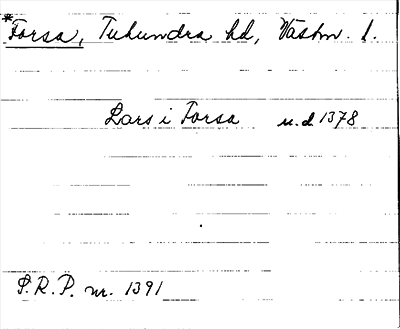 *Forsa, Tuhundra hd, Västm. l.
Lars i Forsa u.d. 1378
S.R.P. nr. 1391